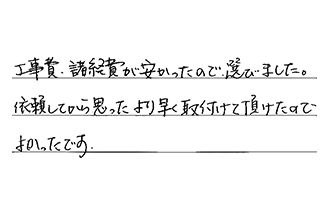 工事費、諸経費が安かったので、選びました。
依頼してから思ったより早く取付けて頂けたので
よかったです.